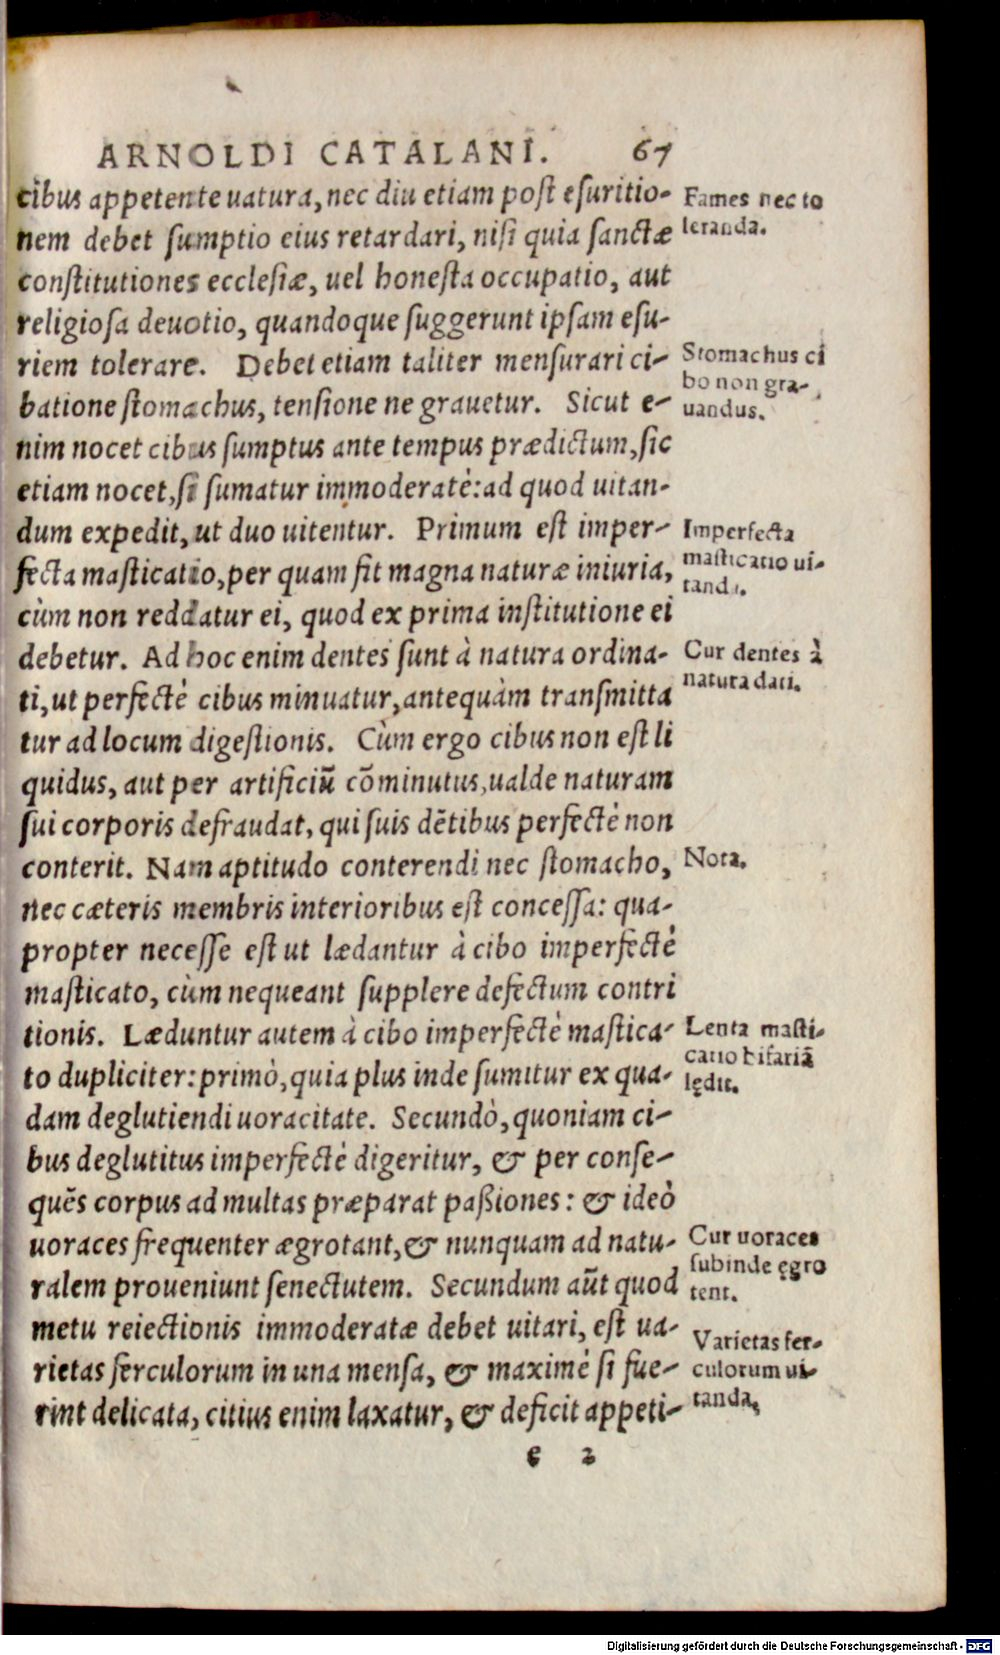 ARNOLDI CATALANI. 67
cibus appetente uatura, nec diu etiam post esuritio-
nem debet sumptio eius retardari, nisi quia sanctæ
constitutiones ecclesiæ, uel honesta occupatio, aut
religiosa deuotio, quandoque suggerunt ipsam esu-
riem tolerare. Debet etiam taliter mensurari ci-
batione stomachus, tensione ne grauetur. Sicut e-
nim nocet cibus sumptus ante tempus prædictum, sic
etiam nocet, si sumatur immoderatè: ad quod uitan-
dum expedit, ut duo uitentur. Primum est imper-
fecta masticatio, per quam fit magna naturæ iniuria,
cùm non reddatur ei, quod ex prima institutione ei
debetur. Ad hoc enim dentes sunt à natura ordina-
ti, ut perfectè cibus minuatur, antequàm transmitta
tur ad locum digestionis. Cùm ergo cibus non est li
quidus, aut per artificiū cōminutus, ualde naturam
sui corporis defraudat, qui suis dētibus perfectè non
conterit. Nam aptitudo conterendi nec stomacho,
nec cæteris membris interioribus est concessa: qua-
propter necesse est ut lædantur à cibo imperfectè
masticato, cùm nequeant supplere defectum contri
tionis. Læduntur autem à cibo imperfectè mastica-
to dupliciter: primò, quia plus inde sumitur ex qua-
dam deglutiendi uoracitate. Secundò, quoniam ci-
bus deglutitus imperfectè digeritur, & per conse-
quēs corpus ad multas præparat paßiones: & ideò
uoraces frequenter ægrotant, & nunquam ad natu-
ralem proueniunt senectutem. Secundum aūt quod
metu reiectionis immoderatæ debet uitari, est ua-
rietas ferculorum in una mensa, & maximè si fue-
rint delicata, citius enim laxatur, & deficit appeti-
e 2
Fames nec to
leranda.
Stomachus ci
bo non gra-
uandus.
Imperfecta
masticatio ui-
tanda.
Cur dentes à
natura dati.
Nota.
Lenta masti-
catio bifariā
lędit.
Cur uoraces
subinde ęgro
tent.
Varietas fer-
culorum ui-
tanda,
Digitalisierung gefördert durch die Deutsche Forschungsgemeinschaft - DFG